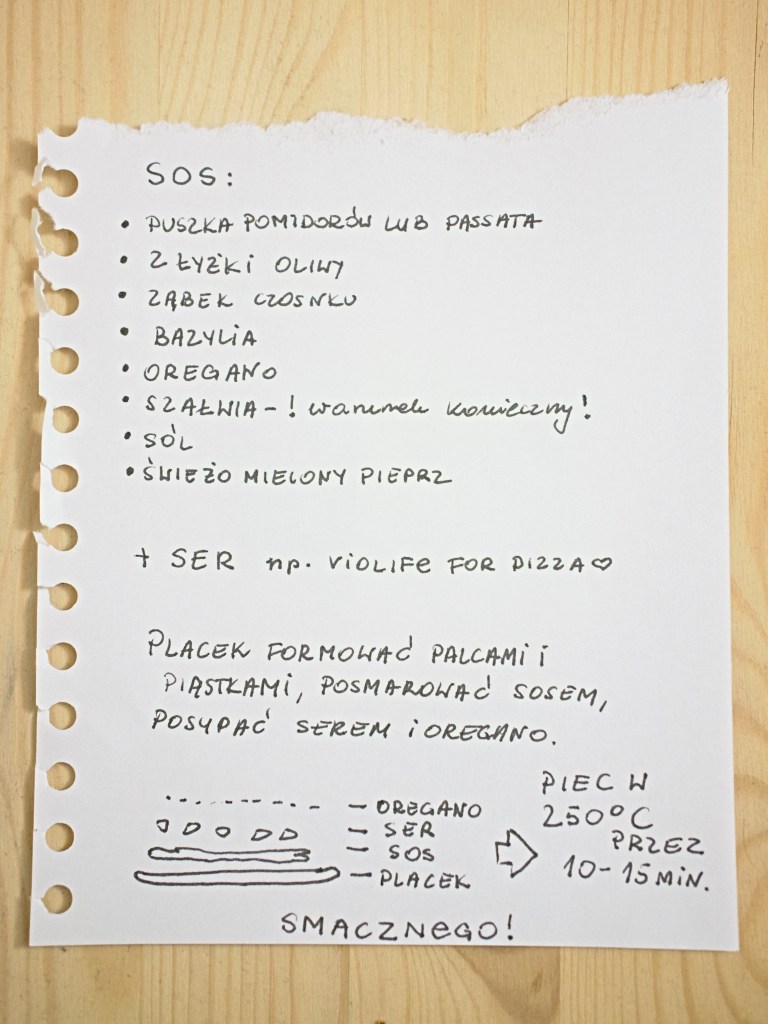 SOS:
• PUSZKA POMIDORÓW LUB PASSATA
• 2 ŁYŻKI OLIWY
• ZĄBEK CZOSNKU
• BAZYLIA
• OREGANO
• SZAŁWIA - ! warunek konieczny!
• SÓL
• ŚWIEŻO MIELONY PIEPRZ
+ SER np. VIOLIFE FOR PIZZA ♡
PLACEK FORMOWAĆ PALCAMI i
PIĄSTKAMI, POSMAROWAĆ SOSEM,
POSYPAĆ SEREM i OREGANO.
— OREGANO
— SER
— SOS
— PLACEK
PIEC W
250°C
PRZEZ
10-15 MIN.
SMACZNEGO!